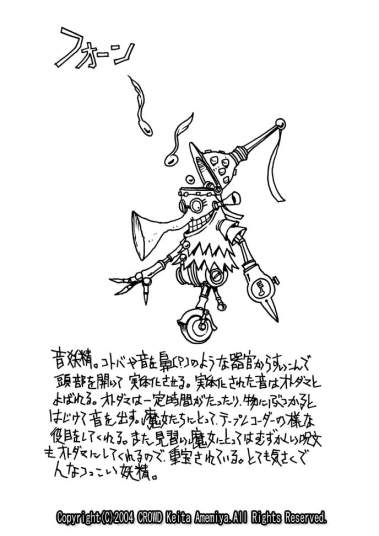 フォーン
音妖精。コトバや音を鼻(?)のような器官からすいこんで
頭部を開って実体化させる。実体化された音はオトダマと
よばれる。オトダマは一定時間がたったり、物にぶつかると
はじけて音を出す。魔女たちにとって、テープレコーダーの様な
役目をしてくれる。また見習い魔女にとってはむずかしい呪文
もオトダマにしてくれるので、重宝されている。とても気さくで
んなつっこい妖精。
Copyright(C)2004 CROWD Keita Amemiya.All Rights Reserved.